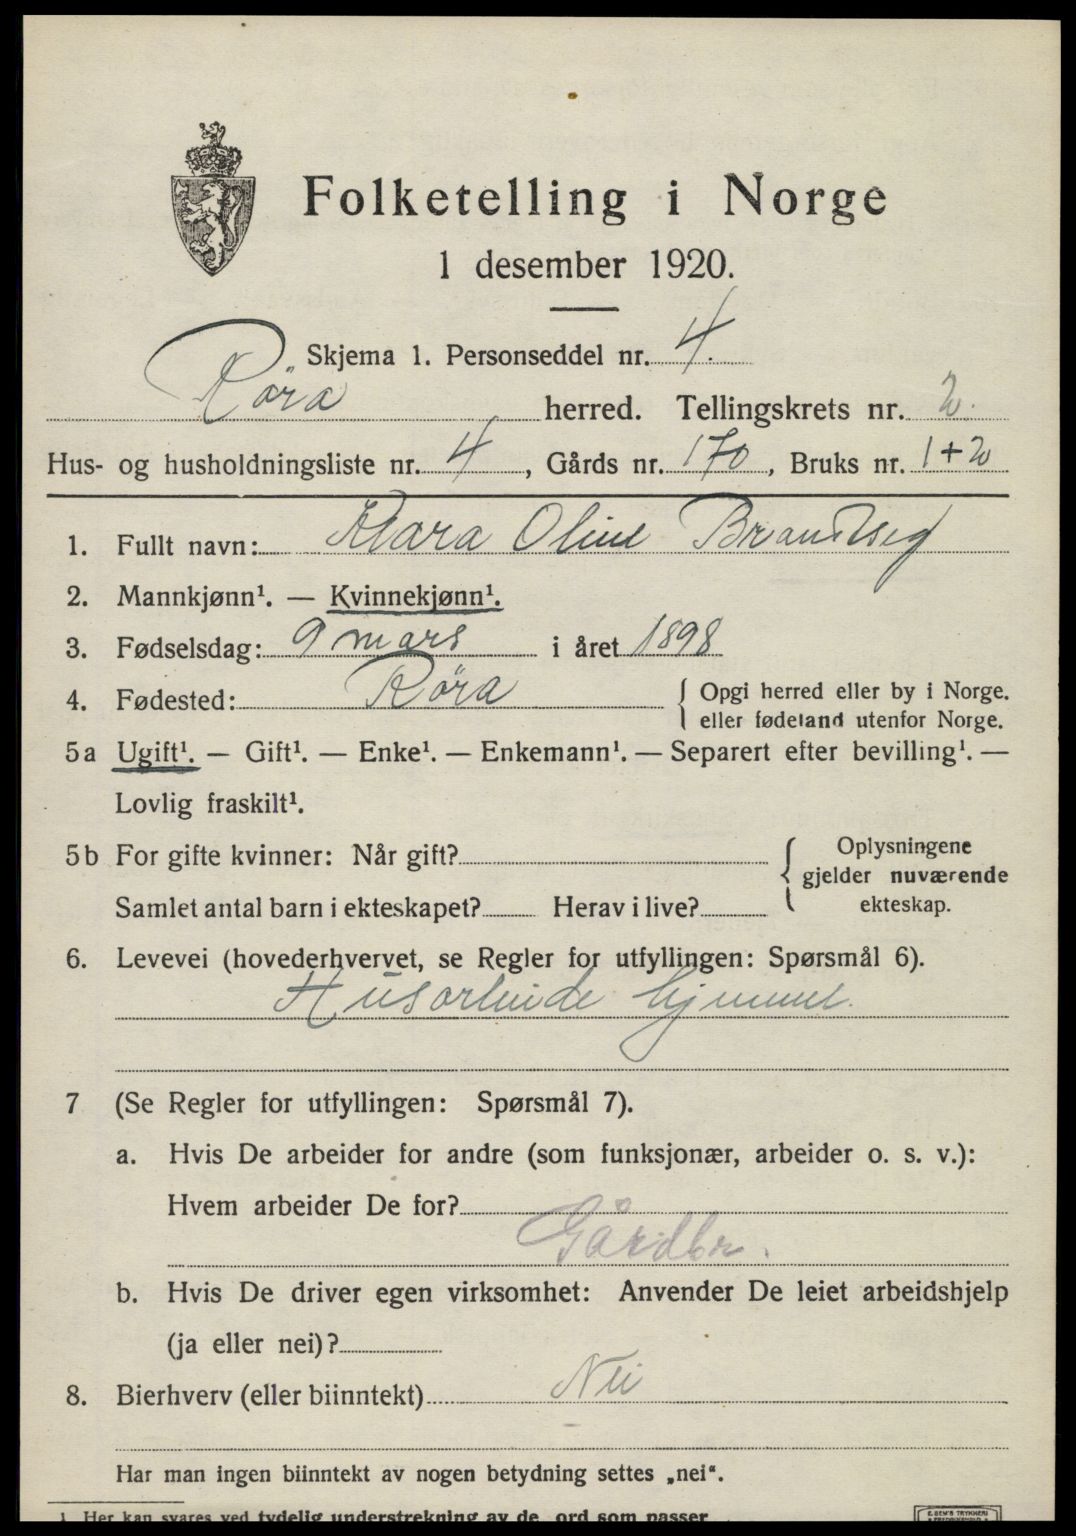 Folketelling i Norge
1 desember 1920.
Skjema 1. Personseddel nr. 4.
Röra herred. Tellingskrets nr. 2.
Hus- og husholdningsliste nr. 4, Gårds nr. 170, Bruks nr. 1+2
1. Fullt navn: Klara Oline Brandtseg
2. Mannkjønn¹. — Kvinnekjønn¹.
3. Fødselsdag: 9 mars i året 1898
4. Fødested: Röra { Opgi herred eller by i Norge.
eller fødeland utenfor Norge.
5a Ugift¹. — Gift¹. — Enke¹. — Enkemann¹. — Separert efter bevilling¹. —
Lovlig fraskilt¹.
5b For gifte kvinner: Når gift? { Oplysningene
gjelder nuværende
Samlet antal barn i ekteskapet? Herav i live? ekteskap.
6. Levevei (hovederhvervet, se Regler for utfyllingen: Spørsmål 6).
Husarbeide hjemme.
7 (Se Regler for utfyllingen: Spørsmål 7).
a. Hvis De arbeider for andre (som funksjonær, arbeider o. s. v.):
Hvem arbeider De for?
Gårdbr.
b. Hvis De driver egen virksomhet: Anvender De leiet arbeidshjelp
(ja eller nei)?
8. Bierhverv (eller biinntekt) Nei
Har man ingen biinntekt av nogen betydning settes „nei".
1 Her kan svares ved tydelig understrekning av de ord som passer